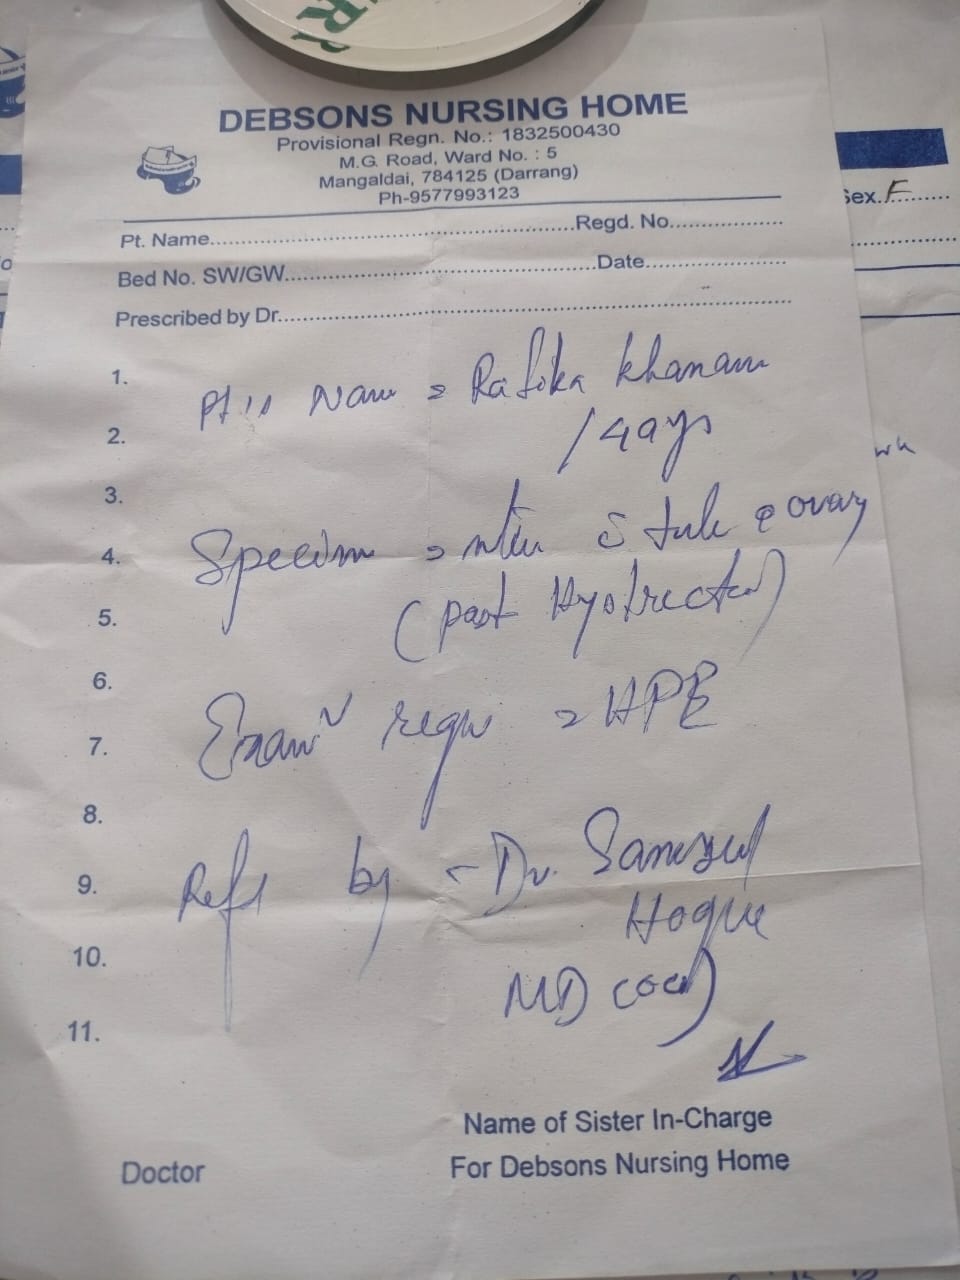 DEBSONS NURSING HOME
Provisional Regn. No.: 1832500430
M.G. Road, Ward No. : 5
Mangaldai, 784125 (Darrang)
Ph-9577993123
Pt. Name..............Regd. No..............
Bed No. SW/GW..............Date..............
Prescribed by Dr..............
1.
Pt's Nam = Rafika Khanam
2.
/49ys
3.
4.
Specim = c̄ tube ovary
5.
(Post
6.
7.
Exam^n requ = HPE
8.
9.
Refd by - Dr. Samsul
Hoque
10.
MD
11.
Name of Sister In-Charge
Doctor
For Debsons Nursing Home
Sex. F